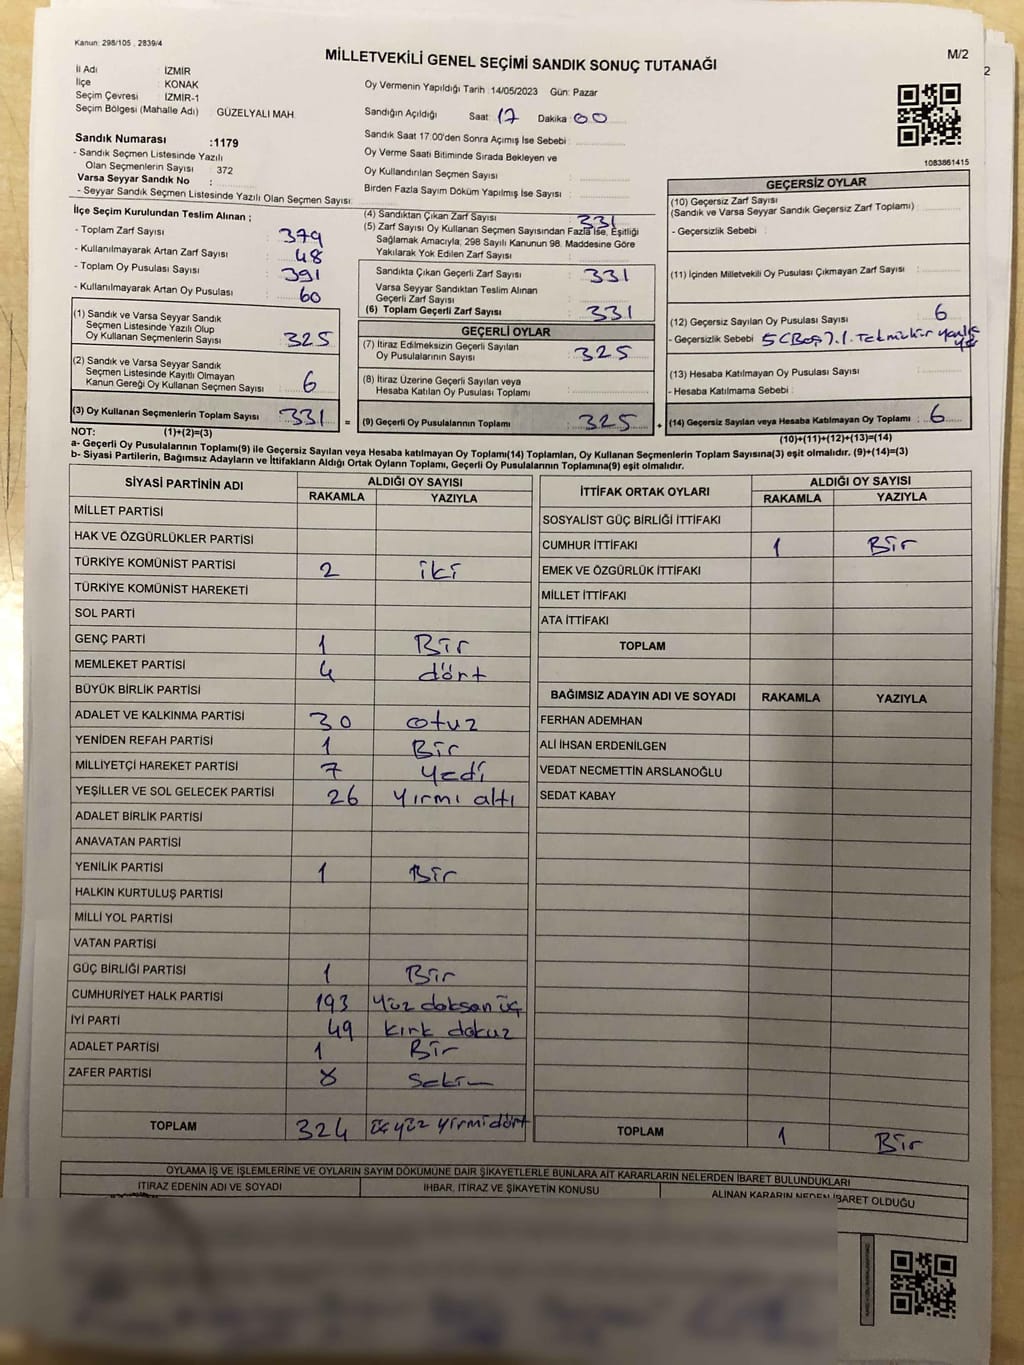 Kanun: 298/105 , 2839/4
MİLLETVEKİLİ GENEL SEÇİMİ SANDIK SONUÇ TUTANAĞI
M/2
2
İl Adı : İZMİR
İlçe : KONAK
Seçim Çevresi : İZMİR-1
Seçim Bölgesi (Mahalle Adı) : GÜZELYALI MAH.
Sandık Numarası :1179
- Sandık Seçmen Listesinde Yazılı
Olan Seçmenlerin Sayısı : 372
Varsa Seyyar Sandık No :
- Seyyar Sandık Seçmen Listesinde Yazılı Olan Seçmen Sayısı:
Oy Vermenin Yapıldığı Tarih :14/05/2023 Gün: Pazar
Sandığın Açıldığı Saat : 17 Dakika : 00
Sandık Saat 17:00'den Sonra Açımış İse Sebebi :
Oy Verme Saati Bitiminde Sırada Bekleyen ve
Oy Kullandırılan Seçmen Sayısı :
Birden Fazla Sayım Döküm Yapılmış İse Sayısı :
1083861415
İlçe Seçim Kurulundan Teslim Alınan ;
- Toplam Zarf Sayısı : 379
- Kullanılmayarak Artan Zarf Sayısı : 48
- Toplam Oy Pusulası Sayısı : 391
- Kullanılmayarak Artan Oy Pusulası : 60
(1) Sandık ve Varsa Seyyar Sandık
Seçmen Listesinde Yazılı Olup
Oy Kullanan Seçmenlerin Sayısı : 325
(2) Sandık ve Varsa Seyyar Sandık
Seçmen Listesinde Kayıtlı Olmayan
Kanun Gereği Oy Kullanan Seçmen Sayısı : 6
(3) Oy Kullanan Seçmenlerin Toplam Sayısı : 331 =
(4) Sandıktan Çıkan Zarf Sayısı : 331
(5) Zarf Sayısı Oy Kullanan Seçmen Sayısından Fazla İse, Eşitliği
Sağlamak Amacıyla, 298 Sayılı Kanunun 98. Maddesine Göre
Yakılarak Yok Edilen Zarf Sayısı :
Sandıkta Çıkan Geçerli Zarf Sayısı : 331
Varsa Seyyar Sandıktan Teslim Alınan
Geçerli Zarf Sayısı :
(6) Toplam Geçerli Zarf Sayısı : 331
GEÇERLİ OYLAR
(7) İtiraz Edilmeksizin Geçerli Sayılan
Oy Pusulalarının Sayısı : 325
(8) İtiraz Üzerine Geçerli Sayılan veya
Hesaba Katılan Oy Pusulası Toplamı :
(9) Geçerli Oy Pusulalarının Toplamı : 325 +
GEÇERSİZ OYLAR
(10) Geçersiz Zarf Sayısı
(Sandık ve Varsa Seyyar Sandık Geçersiz Zarf Toplamı) :
- Geçersizlik Sebebi :
(11) İçinden Milletvekili Oy Pusulası Çıkmayan Zarf Sayısı :
(12) Geçersiz Sayılan Oy Pusulası Sayısı : 6
- Geçersizlik Sebebi : 5 (Beş)
(13) Hesaba Katılmayan Oy Pusulası Sayısı :
- Hesaba Katılmama Sebebi :
(14) Geçersiz Sayılan veya Hesaba Katılmayan Oy Toplamı : 6
NOT: (1)+(2)=(3)
(10)+(11)+(12)+(13)=(14)
a- Geçerli Oy Pusulalarının Toplamı(9) ile Geçersiz Sayılan veya Hesaba katılmayan Oy Toplamı(14) Toplamları, Oy Kullanan Seçmenlerin Toplam Sayısına(3) eşit olmalıdır. (9)+(14)=(3)
b- Siyasi Partilerin, Bağımsız Adayların ve İttifakların Aldığı Ortak Oyların Toplamı, Geçerli Oy Pusulalarının Toplamına(9) eşit olmalıdır.
SİYASİ PARTİNİN ADI ALDIĞI OY SAYISI
RAKAMLA YAZIYLA
MİLLET PARTİSİ
HAK VE ÖZGÜRLÜKLER PARTİSİ
TÜRKİYE KOMÜNİST PARTİSİ 2 iki
TÜRKİYE KOMÜNİST HAREKETİ
SOL PARTİ
GENÇ PARTİ 1 Bir
MEMLEKET PARTİSİ 4 dört
BÜYÜK BİRLİK PARTİSİ
ADALET VE KALKINMA PARTİSİ 30 otuz
YENİDEN REFAH PARTİSİ 1 Bir
MİLLİYETÇİ HAREKET PARTİSİ 7 Yedi
YEŞİLLER VE SOL GELECEK PARTİSİ 26 Yırmı altı
ADALET BİRLİK PARTİSİ
ANAVATAN PARTİSİ
YENİLİK PARTİSİ 1 Bir
HALKIN KURTULUŞ PARTİSİ
MİLLİ YOL PARTİSİ
VATAN PARTİSİ
GÜÇ BİRLİĞİ PARTİSİ 1 Bir
CUMHURİYET HALK PARTİSİ 193 Yüz doksan üç
İYİ PARTİ 49 kırk dokuz
ADALET PARTİSİ 1 Bir
ZAFER PARTİSİ 8 Sekiz
TOPLAM 324 üç yüz yirmi dört
İTTİFAK ORTAK OYLARI ALDIĞI OY SAYISI
RAKAMLA YAZIYLA
SOSYALİST GÜÇ BİRLİĞİ İTTİFAKI
CUMHUR İTTİFAKI 1 Bir
EMEK VE ÖZGÜRLÜK İTTİFAKI
MİLLET İTTİFAKI
ATA İTTİFAKI
TOPLAM
BAĞIMSIZ ADAYIN ADI VE SOYADI RAKAMLA YAZIYLA
FERHAN ADEMHAN
ALİ İHSAN ERDENİLGEN
VEDAT NECMETTİN ARSLANOĞLU
SEDAT KABAY
TOPLAM 1 Bir
OYLAMA İŞ VE İŞLEMLERİNE VE OYLARIN SAYIM DÖKÜMÜNE DAİR ŞİKAYETLERLE BUNLARA AİT KARARLARIN NELERDEN İBARET BULUNDUKLARI
İTİRAZ EDENİN ADI VE SOYADI İHBAR, İTİRAZ VE ŞİKAYETİN KONUSU ALINAN KARARIN NEDEN İBARET OLDUĞU